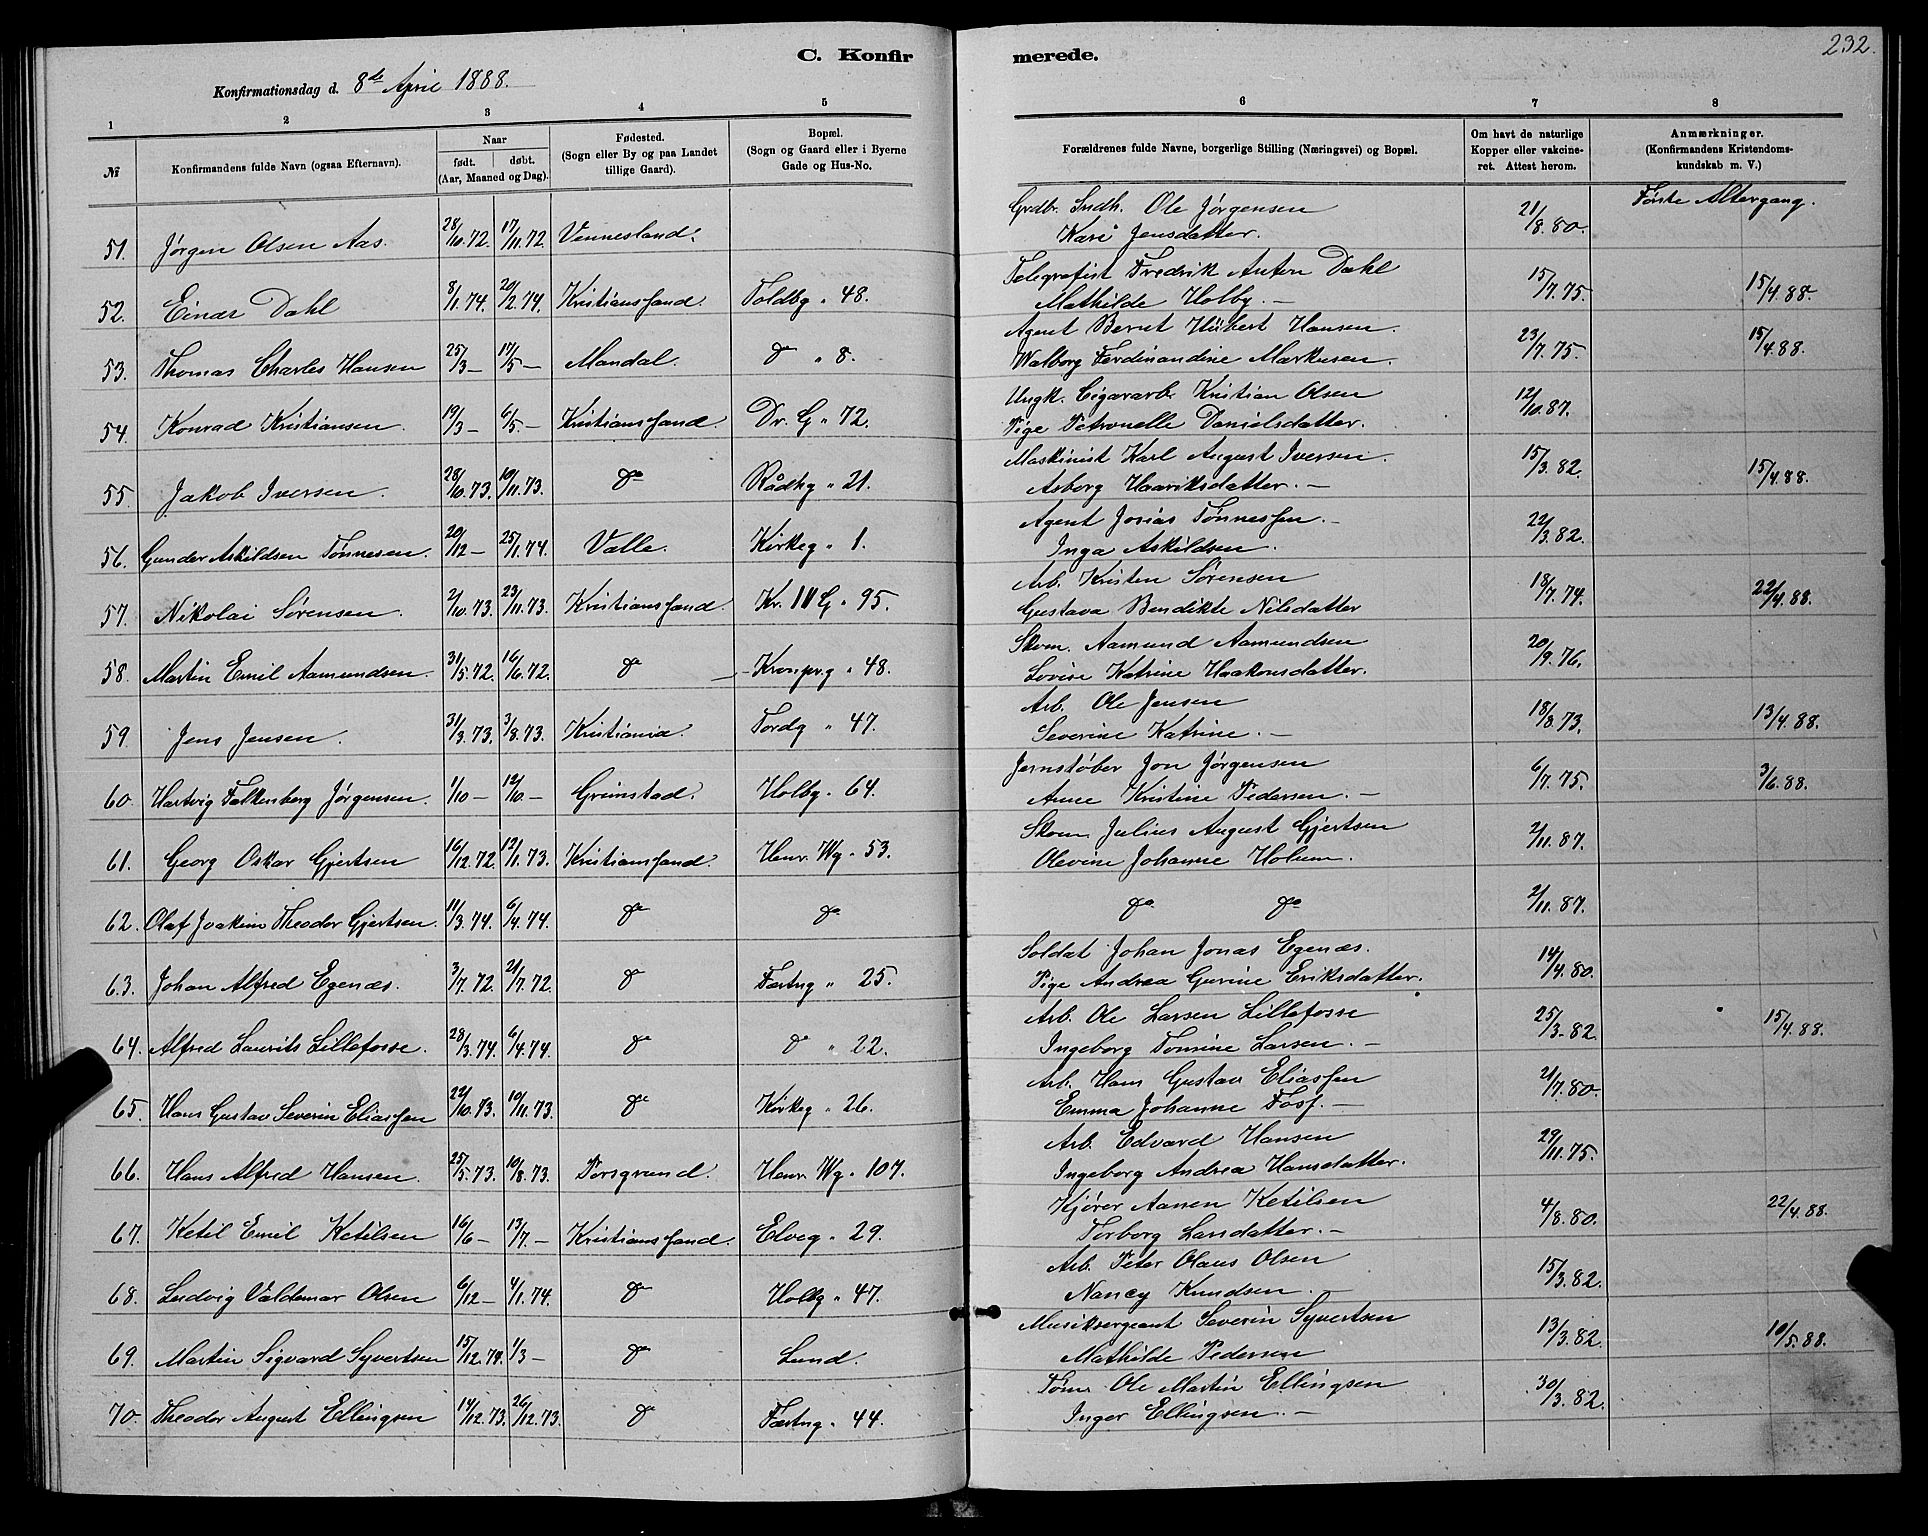 232.
C. Konfirmerede.
Konfirmationsdag d. 8de April 1888.
1 2 3 4 5 6 7 8
№ Konfirmandens fulde Navn (ogsaa Efternavn). Naar født. døbt. (Aar, Maaned og Dag). Fødested. (Sogn eller By og paa Landet tillige Gaard). Bopæl. (Sogn og Gaard eller i Byerne Gade og Hus-No. Forældrenes fulde Navne, borgerlige Stilling (Næringsvei) og Bopæl. Om havt de naturlige Kopper eller vakcineret. Attest herom. Anmærkninger. (Konfirmandens Kristendomskundskab m. V.)
Første Altergang.
51. Jørgen Olsen Aas. 28/10.72. 17/11.72. Vennesland. Grdbr. Sndh. Ole Jørgensen 21/8.80.
Kari Jensdatter.
52. Einar Dahl 8/1.74. 20/2.74. Kristianssand. Toldbg " 48. Telegrafist Fredrik Anton Dahl 15/7.75. 15/4.88.
Mathilde Holby. —
53. Thomas Charles Hansen 25/3 — 17/5 — Mandal. do " 8. Agent Bernt Hübert Hansen. 23/7.75. 15/4.88.
Walborg Ferdinandine Markusen.
54. Konrad Kristiansen. 19/3 — 6/5. — Kristianssand. Dr. G " 72. Ungk. Cigararb. Kristian Olsen 12/10.87.
Pige Petronelle Danielsdatter.
55. Jakob Iversen. 28/10.73. 10/11.73. do Rådhg " 21. Maskinist Karl August Iversen. 15/3.82. 15/4.88.
Asborg Haariksdatter. —
56. Gunder Askildsen Tønnesen. 20/12 — 25/1.74. Valle. Kirkeg " 1. Agent Josias Tønnessen. — 22/3.82.
Inga Askildsen.
57. Nikolai Sørensen. 2/10.73. 23/11.73. Kristianssand. Kr. IV G " 95. Arb. Kristen Sørensen 18/7.74. 22/4.88.
Gustava Bendikte Nilsdatter
58. Martin Emil Aamundsen. 31/5.72. 16/6.72. do Kronprg " 48. Skom. Aamund Aamundsen 20/9.76.
Lovise Katrine Haakonsdatter.
59. Jens Jensen. 31/3.73. 3/8.73. Kristiania. Tordg " 47. Arb. Ole Jensen 18/8.73. 13/4.88.
Severine Katrine. —
60. Hartvig Falkenberg Jørgensen. 1/10 — 12/10 — Grimstad. Holbg. 64. Jernstøber Jon Jørgensen 6/7.75. 3/6.88.
Anne Kristine Pedersen. —
61. Georg Oskar Gjertsen 16/12.72. 12/1.73. Kristianssand. Henr. Wg " 53. Skom. Julius August Gjertsen 2/11.87.
Olevine Johanne Holum.
62. Olaf Joakim Theodor Gjertsen. 11/3.74. 6/4.74. do do do do 2/11.87.
63. Johan Alfred Egenæs. 3/7.72. 21/7.72. do Fæstng " 25. Soldat Johan Jonas Egenæs. 14/4.80.
Pige Andrea Gurine Eriksdatter.
64. Alfred Laurits Lillefosse. 28/3.74. 6/4.74. do do " 22. Arb. Ole Larsen Lillefosse 25/3.82. 15/4.88.
Ingeborg Tomine Larsen. —
65. Hans Gustav Severin Eliassen 22/10.73. 10/11.73. do Kirkeg " 26. Arb. Hans Gustav Eliassen 21/7.80.
Emma Johanne Foss. —
66. Hans Alfred Hansen. 25/5.73. 10/8.73. Porsgrund. Henr. Wg " 107. Arb. Edvard Hansen 29/11.75.
Ingeborg Andrea Hansdatter.
67. Ketil Emil Ketilsen 16/6 — 13/7 — Kristianssand. Elveg " 29. Kjører Aanen Ketilsen 4/8.80. 22/4.88.
Torborg Larsdatter. —
68. Ludvig Valdemar Olsen 6/12 — 4/1.74. do Holbg " 47. Arb. Peter Olaus Olsen 15/3.82.
Nancy Knudsen. —
69. Martin Sigvard Syvertsen 15/12.74. 1/3 — do Lund. Musiksergeant Severin Syvertsen 13/3.82. 10/5.88.
Mathilde Pedersen
70. Theodor August Ellingsen 14/12.73. 26/12.73. do Fæstng " 44. Tøm. Ole Martin Ellingsen 30/3.82.
Inger Ellingsen. —